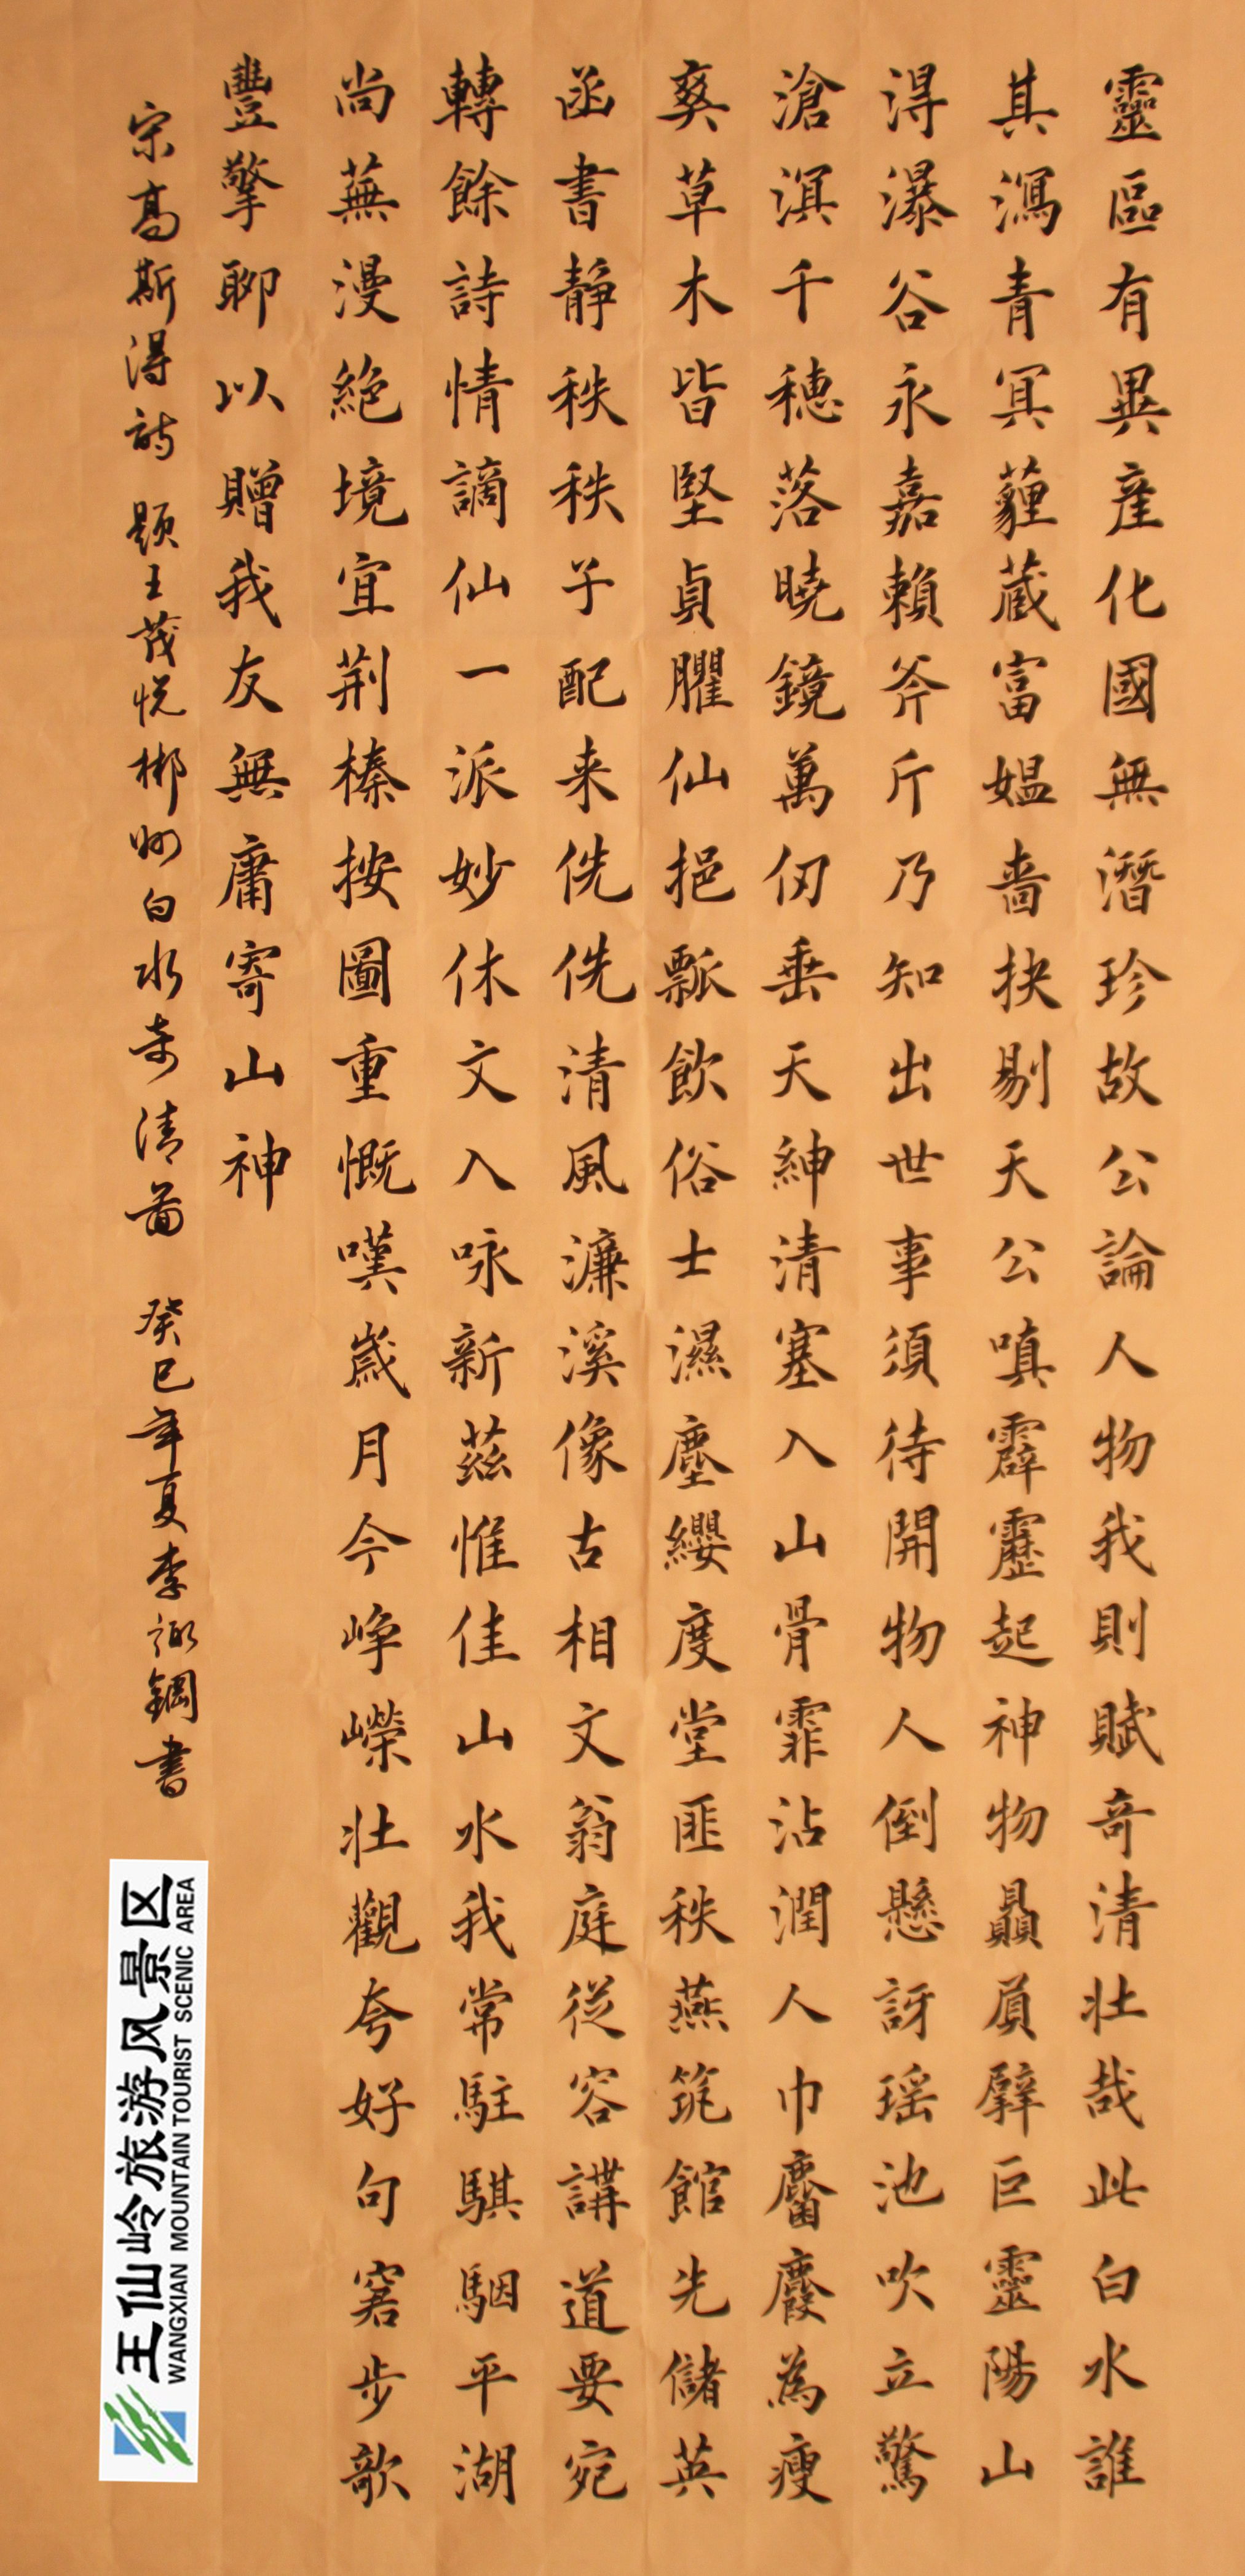 靈區有異產化國無潛珍故公論人物我則賦奇清壯哉此白水誰
其瀉青冥薶蔵富媪嗇抉剔天公嗔霹靂起神物贔屓擘巨靈陽山
得瀑谷永嘉賴斧斤乃知出世事須待開物人倒懸訝瑶池吹立驚
滄溟千穗落曉鏡萬仞垂天紳清塞入山骨霏沾潤人巾麕麚為瘦
奚草木皆堅貞臞仙挹瓢飲俗士濕塵纓度堂匪秩燕筦館先儲英
函書静秩秩子配来侁侁清風濂溪像古相文翁庭從容講道要宛
轉餘詩情謫仙一派妙休文入咏新茲惟佳山水我常駐騏駰平湖
尚蕪漫絕境宜荆榛按圖重慨嘆歲月今峥嶸壯觀夸好句窘步歌
豐擎聊以贈我友無庸寄山神
宋高斯得詩 题王茂悦郴州白水奇清图 癸巳年夏李鋼書
王仙岭旅游风景区
WANGXIAN MOUNTAIN TOURIST SCENIC AREA